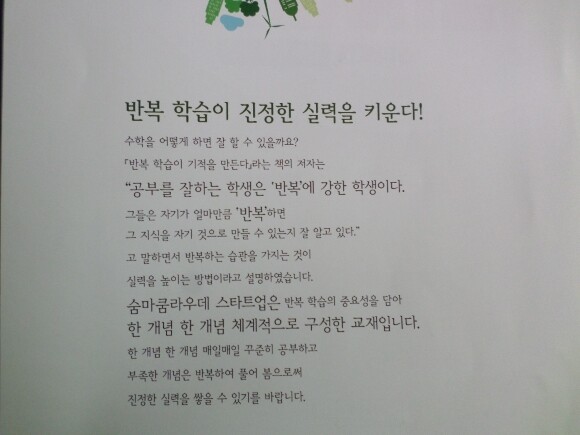 반복 학습이 진정한 실력을 키운다!
수학을 어떻게 하면 잘 할 수 있을까요?
「반복 학습이 기적을 만든다」라는 책의 저자는
“공부를 잘하는 학생은 ‘반복’에 강한 학생이다.
그들은 자기가 얼마만큼 ‘반복’하면
그 지식을 자기 것으로 만들 수 있는지 잘 알고 있다.”
고 말하면서 반복하는 습관을 가지는 것이
실력을 높이는 방법이라고 설명하였습니다.
숨마쿰라우데 스타트업은 반복 학습의 중요성을 담아
한 개념 한 개념 체계적으로 구성한 교재입니다.
한 개념 한 개념 매일매일 꾸준히 공부하고
부족한 개념은 반복하여 풀어 봄으로써
진정한 실력을 쌓을 수 있기를 바랍니다.